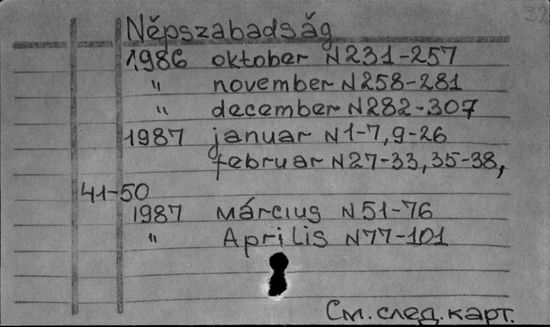 Népszabadság
1986 oktober N231-257
" november N258-281
" december N282-307
1987 januar N1-7, 9-26
februar N27-33, 35-38,
41-50
1987 március N51-76
" Aprilis N77-101
См. след. карт.